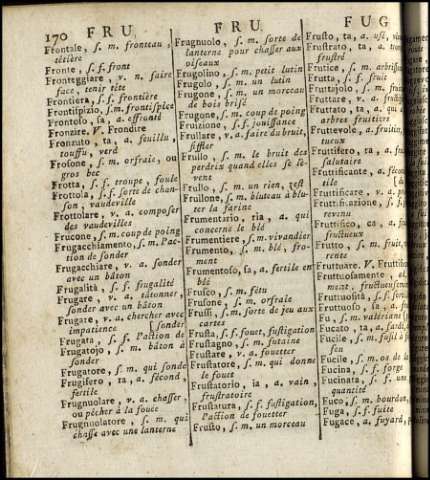 170 FRU
FRU
FUG
Frontale, s. m. fronteau,
têtière
Fronte, s. f. front
Fronteggiare, v. n. faire
face, tenir tête
Frontiera, s. f. frontière
Frontispizio, s. m. frontispice
Frontolo, sa, a. effronté
Fronzire, V. Frondire
Fronzuto, ta, a. feuillu,
touffu, verd
Frosone, s. m. orfraie, ou
gros bec
Frotta, s. f. troupe, foule
Frottola, s. f. sorte de chan-
son, vaudeville
Frottolare, v. a. composer
des vaudevilles
Frucone, s. m. coup de poing
Frugacchiamento, s. m. l'ac-
tion de sonder
Frugacchiare, v. a. sonder
avec un bâton
Frugalità, s. f. frugalité
Frugare, v. a. tâtonner,
sonder avec un bâton
Frugare, v. a. chercher avec
impatience [sonder
Frugata, s. f. l'action de
Frugatojo, s. m. bâton à
sonder
Frugatore, s. m. qui sonde
Frugifero, ra, a. fécond,
fertile
Frugnuolare, v. a. chasser,
ou pêcher à la fouée
Frugnuolatore, s. m. qui
chasse avec une lanterne
Frugnuolo, s. m. sorte de
lanterne pour chasser aux
oiseaux
Frugolino, s. m. petit lutin
Frugolo, s. m. un lutin
Frugone, s. m. un morceau
de bois brisé
Frugone, s. m. coup de poing
Fruizione, s. f. jouissance
Frullare, v. a. faire du bruit,
siffler
Frullo, s. m. le bruit des
perdrix quand elles se lè-
vent
Frullo, s. m. un rien, zest
Frullone, s. m. bluteau à blu-
ter la farine
Frumentario, ria, a. qui
concerne le blé
Frumentiere, s. m. vivandier
Frumento, s. m. blé, fro-
ment
Frumentoso, sa, a. fertile en
blé
Frusco, s. m. fétu
Frusone, s. m. orfraie
Frussi, s. m. sorte de jeu aux
cartes
Frusta, s. f. fouet, fustigation
Frustagno, s. m. futaine
Frustare, v. a. fouetter
Frustatore, s. m. qui donne
le fouet
Frustatorio, ia, a. vain,
frustratoire
Frustatura, s. f. fustigation,
l'action de fouetter
Frusto, s. m. un morceau
Frusto, ta, a. usé,
Frustrato, ta, a.
frustré
Frutice, s. m.
Frutta, s. f. fruit
Fruttajolo, s. m.
Fruttare, v. a.
Fruttato, ta, a. qui
arbres fruitiers
Fruttevole, a.
tueux
Fruttifero, ra, a.
salutaire
Fruttificante, a.
tile
Fruttificare, v. a.
Fruttificazione, s. f.
revenu
Fruttifico, ca, a.
fructueux
Frutto, s. m. fruit,
rente
Fruttuare. V.
Fruttuosamente,
ment,
Fruttuosità, s. f.
Fruttuoso, sa, a.
Fu, s. m.
Fucato, ta, a. fardé,
Fucile, s. m. fusil à
feu
Fucile, s. m. os de la
Fucina, s. f. forge
Fucinata, s. f. une
quantité
Fuco, s. m. bourdon,
Fuga, s. f. fuite
Fugace, a. fuyard,